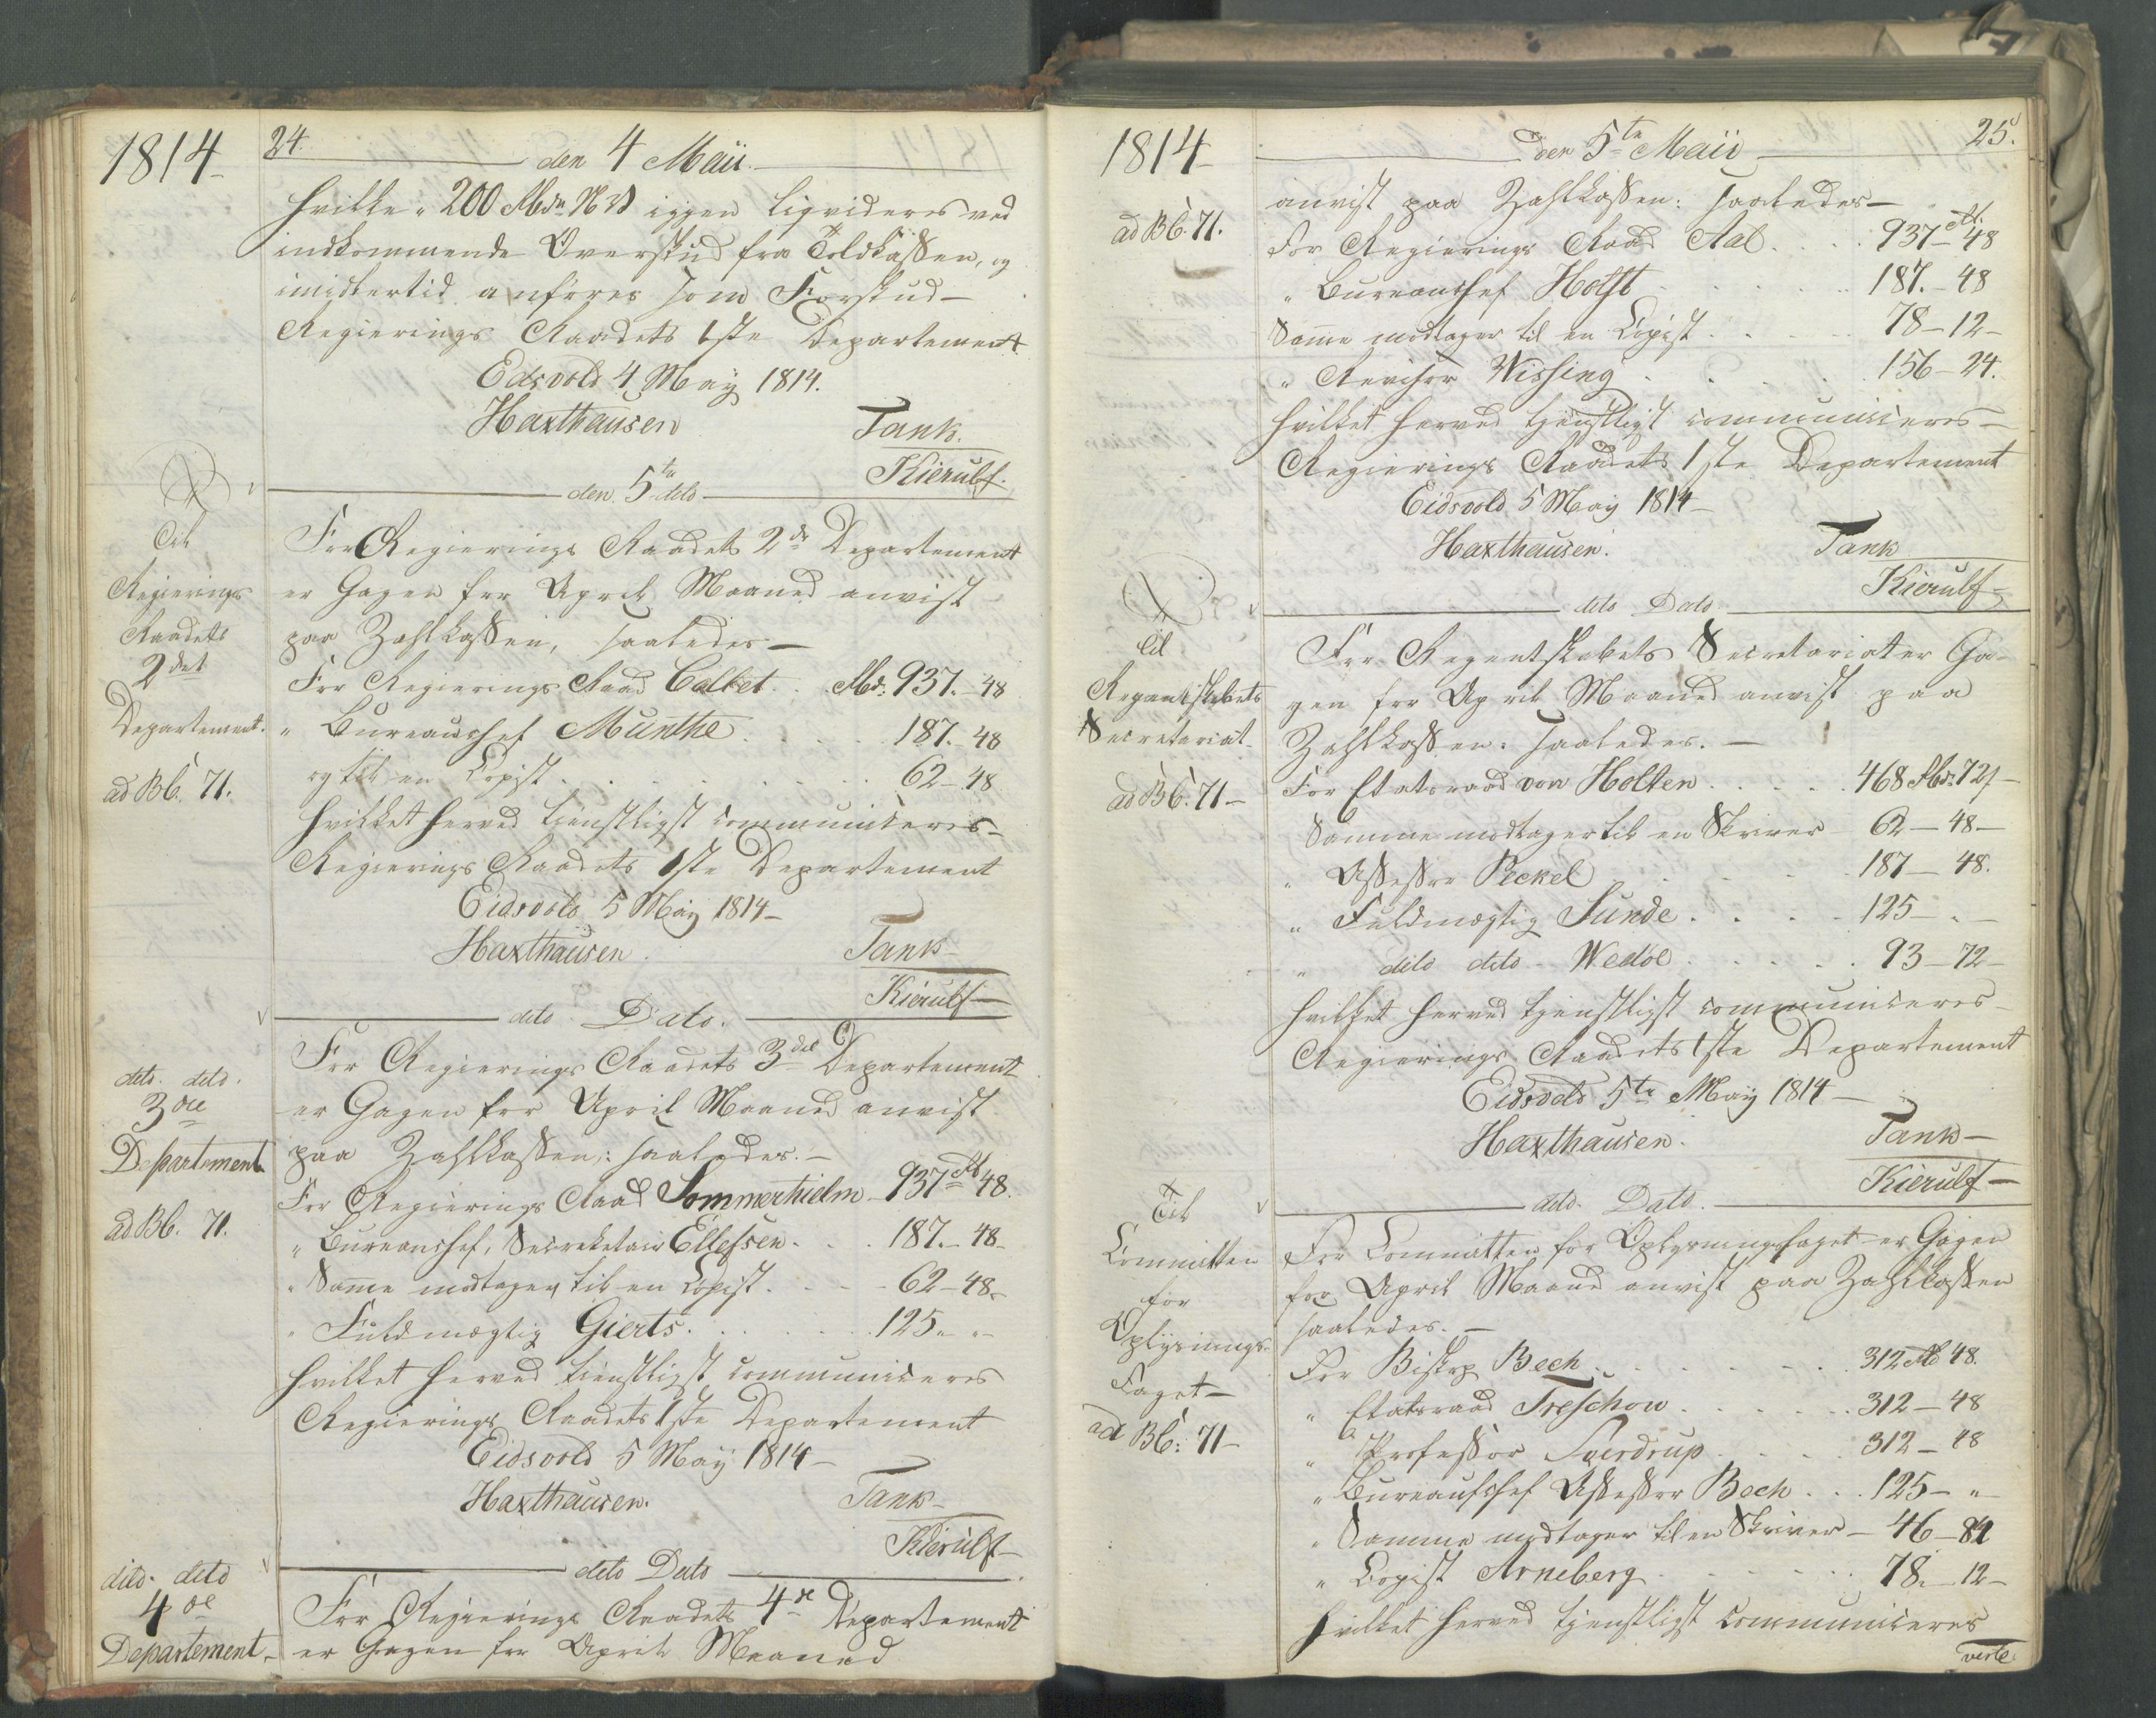 1814
24.
den 4 Maii
hvilke 200 Rbdr NV igjen liqvideres ved
indkommende Overskud fra Toldkassen, og
imidlertid anföres som Forskud —
Regierings Raadets 1ste Departement
Eidsvold 4 May 1814.
Haxthausen
Tank
Kierulf
den 5te dito
Til
Regierings
Raadets
2det
Departement.
ad B6. 71.
For Regierings Raadets 2de Departement
er Gagen for April Maaned anvist
paa Zahlkassen, saaledes —
For Regierings Raad Collet . . Rbd. 937. — 48
" Bureauchef Munthe . . . . 187. — 48
og til en Copist . . . . . . 62 — 48
hvilket herved tienstligst communiceres —
Regierings Raadets 1ste Departement
Eidsvold 5 May 1814 —
Haxthausen.
Tank —
Kierulf —
dito Dato.
dito. dito.
3die
Departement
ad B6. 71.
For Regierings Raadets 3die Departement
er Gagen for April Maaned anvist
paa Zahlkassen: saaledes. —
For Regierings Raad Sommerhielm — 937 Rb 48.
" Bureauchef, Secretair Ellefsen . . . 187. — 48 —
" Samme modtager til en Copist . . — 62 — 48 —
" Fuldmægtig Gierts . . . . . . 125 „ „ —
hvilket herved tienstligst communiceres
Regierings Raadets 1ste Departement
Eidsvold 5 May 1814 —
Haxthausen.
Tank —
Kierulf —
dito Dato
dito. dito
4de
Departement —
For Regierings Raadets 4de Departement
er Gagen for April Maaned
1814
25.
den 5te Maii
ad B6. 71.
anvist paa Zahlkassen: saaledes —
For Regierings Raad Aal . . . . 937 Rb. 48
" Bureauchef Holst . . . . . . 187. — 48
Samme modtager til en Copist . . . 78 — 12 —
" Revisor Wissing . . . . . 156 — 24.
hvilket herved tjenstligst communiceres —
Regierings Raadets 1ste Departement
Eidsvold 5 May 1814 —
Haxthausen.
Tank
Kierulf —
dito Dato
Til
Regentskabets
Secretariat
ad B6. 71 —
For Regentskabets Secretariat er Ga-
gen for April Maaned anvist paa
Zahlkassen: saaledes. —
For Etatsraad von Holten . . . . . 468 Rbd. 72 s —
Samme modtager til en Skriver — 62 — 48 —
" Assessor Peckel . . . . — 187 — 48.
" Fuldmægtig Sunde . . . . 125 — „ —
" dito dito Wedöe . . . . . 93 — 72 —
hvilket herved tjenstligst communiceres —
Regierings Raadets 1ste Departement
Eidsvold 5te May 1814 —
Haxthausen.
Tank —
Kierulf —
dito. Dato.
Til
Committeen
for
Oplysnings-
Faget —
ad B6: 71 —
For Committeen for Oplysningsfaget er Gagen
for April Maaned anvist paa Zahlkassen
saaledes. —
For Biskop Bech . . . . . . . 312 Rb 48.
" Etatsraad Treschow . . . . . . 312 — 48
" Professor Sverdrup . . . . 312 — 48
" Bureauchef Assessor Bech . . . 125 — „
" Samme modtager til en Skriver — 46 — 84
" Copist Arneberg . . . . . . 78. — 12 —
hvilket herved tjenstligst communiceres
verte